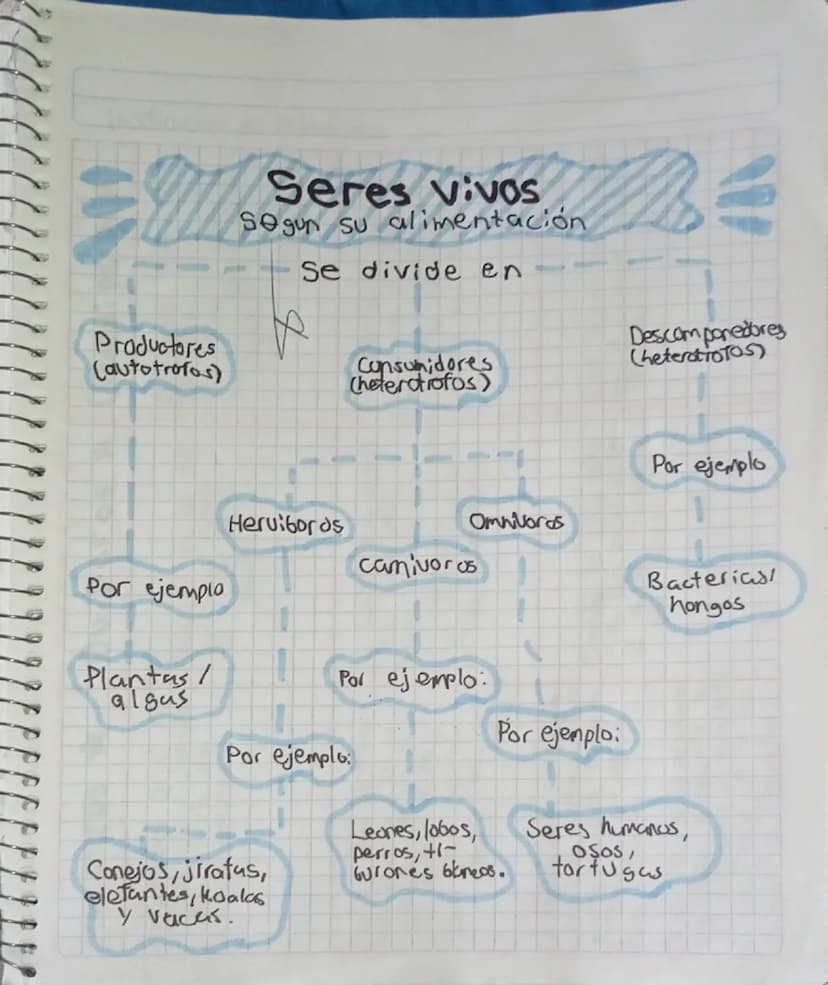 Seres vivos
Segun su alimentación
Se divide en
Productores
(autotrofos)
Consumidores
(heterotrofos)
Descomponedores
(heterotrofos)
Por ejemplo
Herviboros
Omnivoros
Carnivoros
Por ejemplo
Bacterias/
hongos
Plantas /
algas
Por ejemplo:
Por ejemplo:
Por ejemplo:
Conejos, jirafas,
elefantes, koalas
y vacas.
Leones, lobos,
perros, ti-
burones blancos.
Seres humanos,
osos,
tortugas